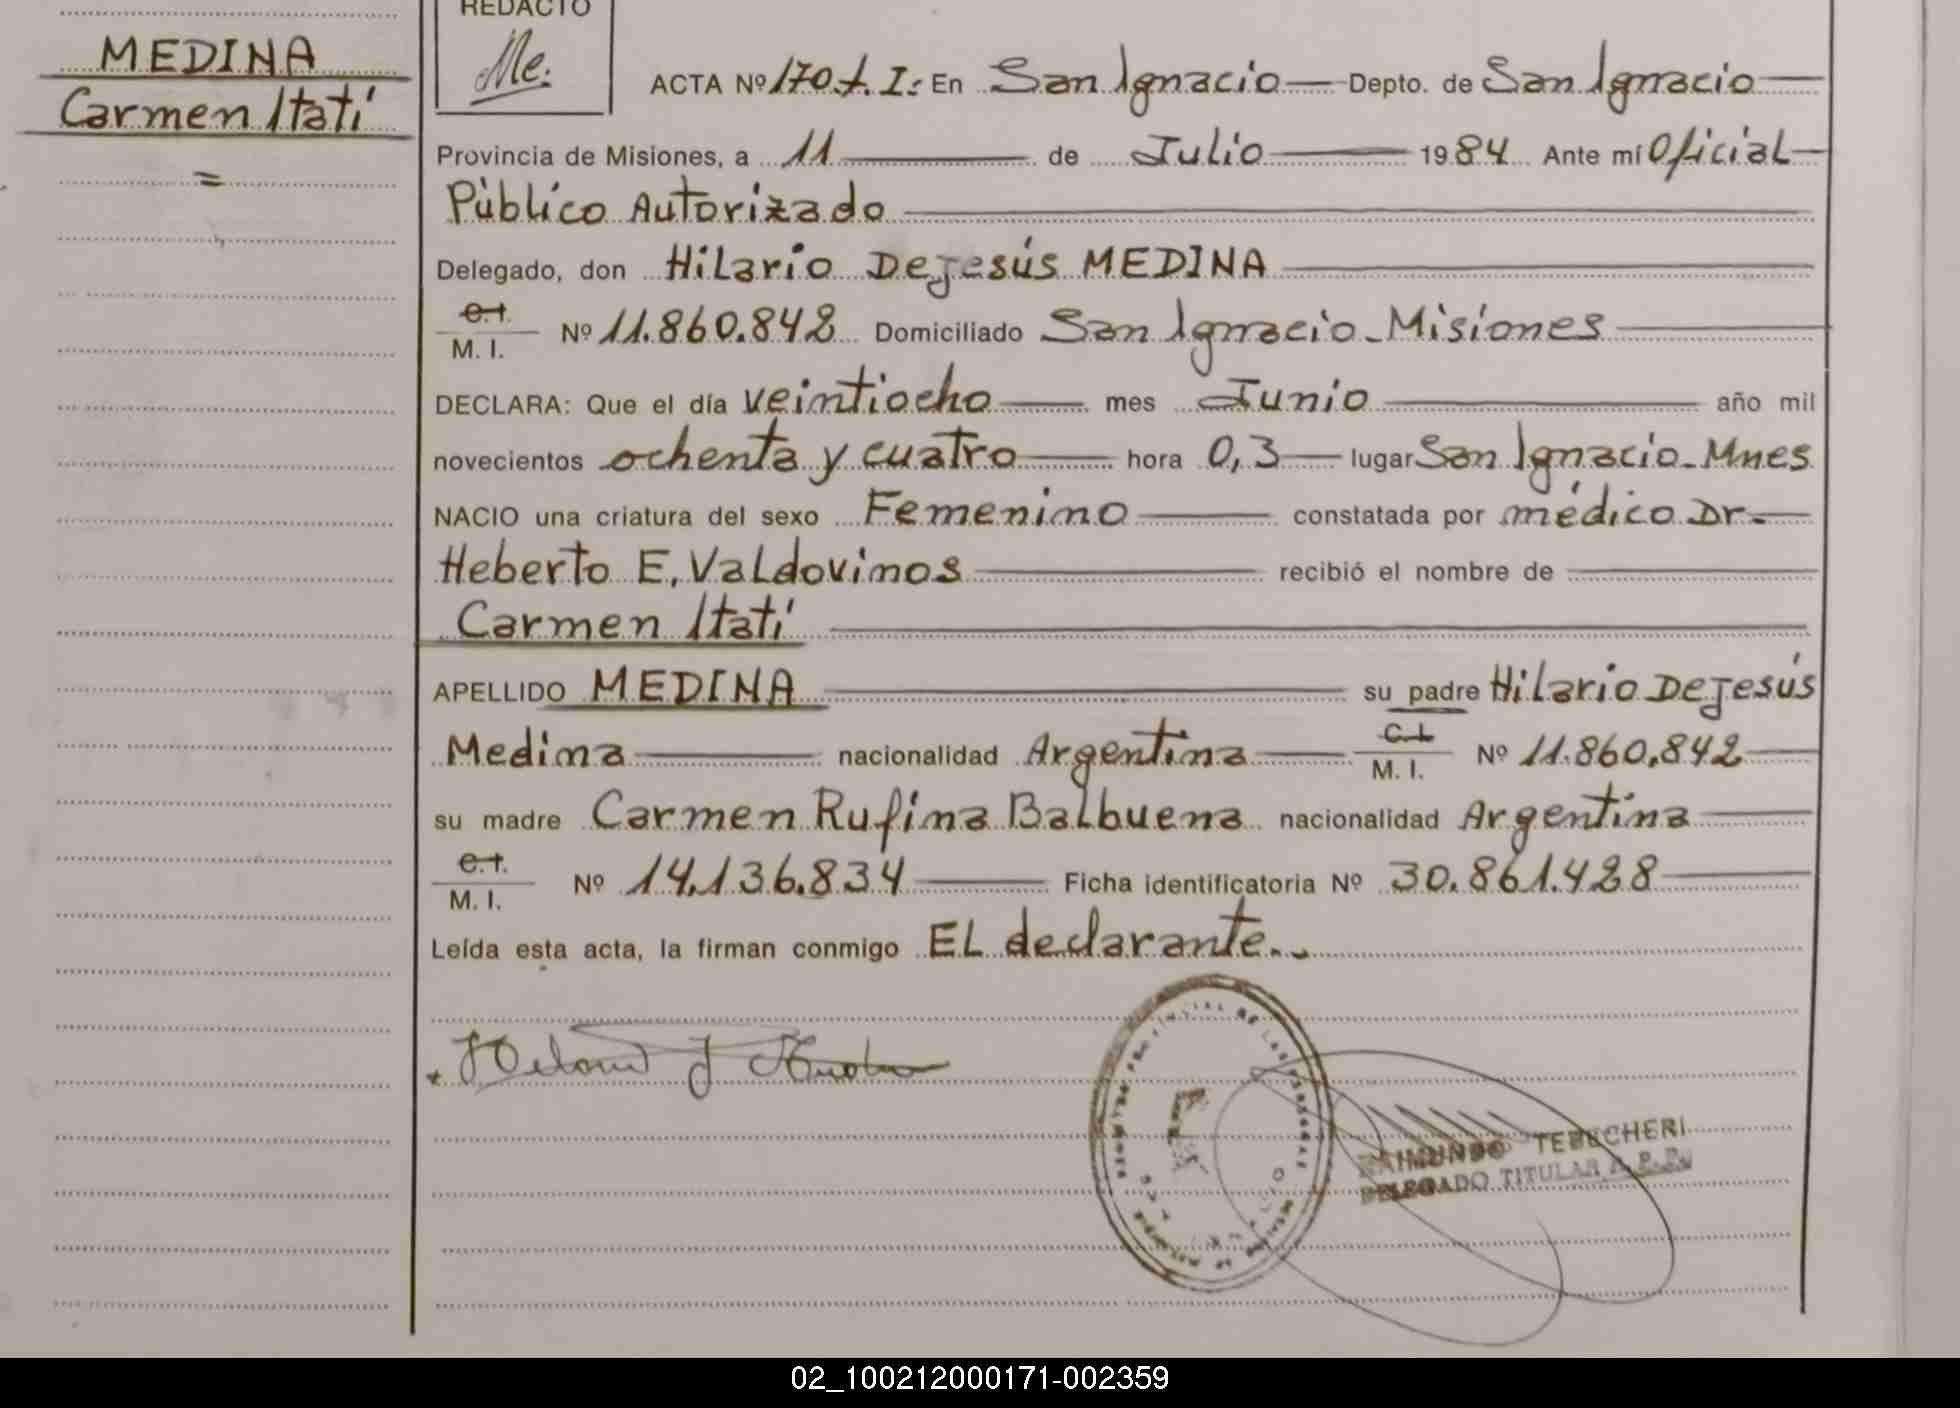 MEDINA
Carmen Itatí
=
REDACTO
Me.
ACTA Nº 170 f. I: En San Ignacio Depto. de San Ignacio
Provincia de Misiones, a 11 de Julio 1984 Ante mí Oficial
Público Autorizado
Delegado, don Hilario DeJesús MEDINA
C.I.
M. I. Nº 11.860.842 Domiciliado San Ignacio - Misiones
DECLARA: Que el día veintiocho mes Junio año mil
novecientos ochenta y cuatro hora 0,3 lugar San Ignacio - Mnes
NACIO una criatura del sexo Femenino constatada por médico Dr.
Heberto E. Valdovinos recibió el nombre de
Carmen Itatí
APELLIDO MEDINA su padre Hilario DeJesús
Medina nacionalidad Argentina C.I. M. I. Nº 11.860.842
su madre Carmen Rufina Balbuena nacionalidad Argentina
C.I.
M. I. Nº 14.136.834 Ficha identificatoria Nº 30.861.428
Leída esta acta, la firman conmigo EL declarante.
RAIMUNDO TEBUCHERI
DELEGADO TITULAR R. P. P.
02_100212000171-002359